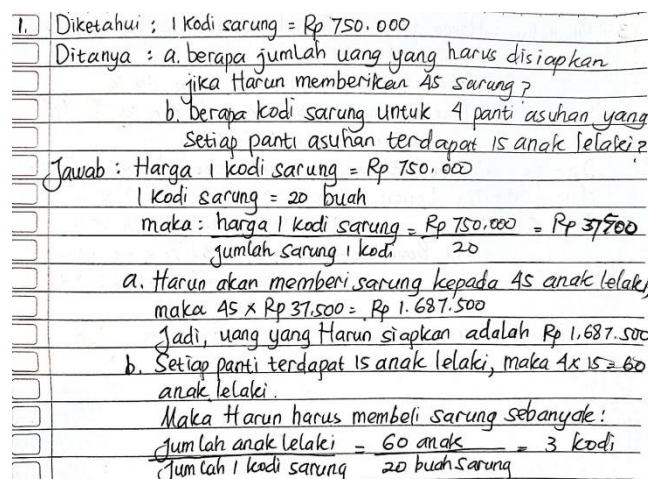 1. Diketahui : 1 Kodi sarung = Rp 750.000
Ditanya : a. berapa jumlah uang yang harus disiapkan
jika Harun memberikan 45 sarung?
b. berapa kodi sarung untuk 4 panti asuhan yang
setiap panti asuhan terdapat 15 anak lelaki?
Jawab : Harga 1 kodi sarung = Rp 750.000
1 kodi sarung = 20 buah
maka : harga 1 kodi sarung = Rp 750.000 = Rp 37500
jumlah sarung 1 kodi 20
a. Harun akan memberi sarung kepada 45 anak lelaki,
maka 45 x Rp 37.500 = Rp 1.687.500
Jadi, uang yang Harun siapkan adalah Rp 1.687.500
b. Setiap panti terdapat 15 anak lelaki, maka 4 x 15 = 60
anak lelaki.
Maka Harun harus membeli sarung sebanyak :
Jumlah anak lelaki = 60 anak = 3 kodi
Jumlah 1 kodi sarung 20 buah sarung